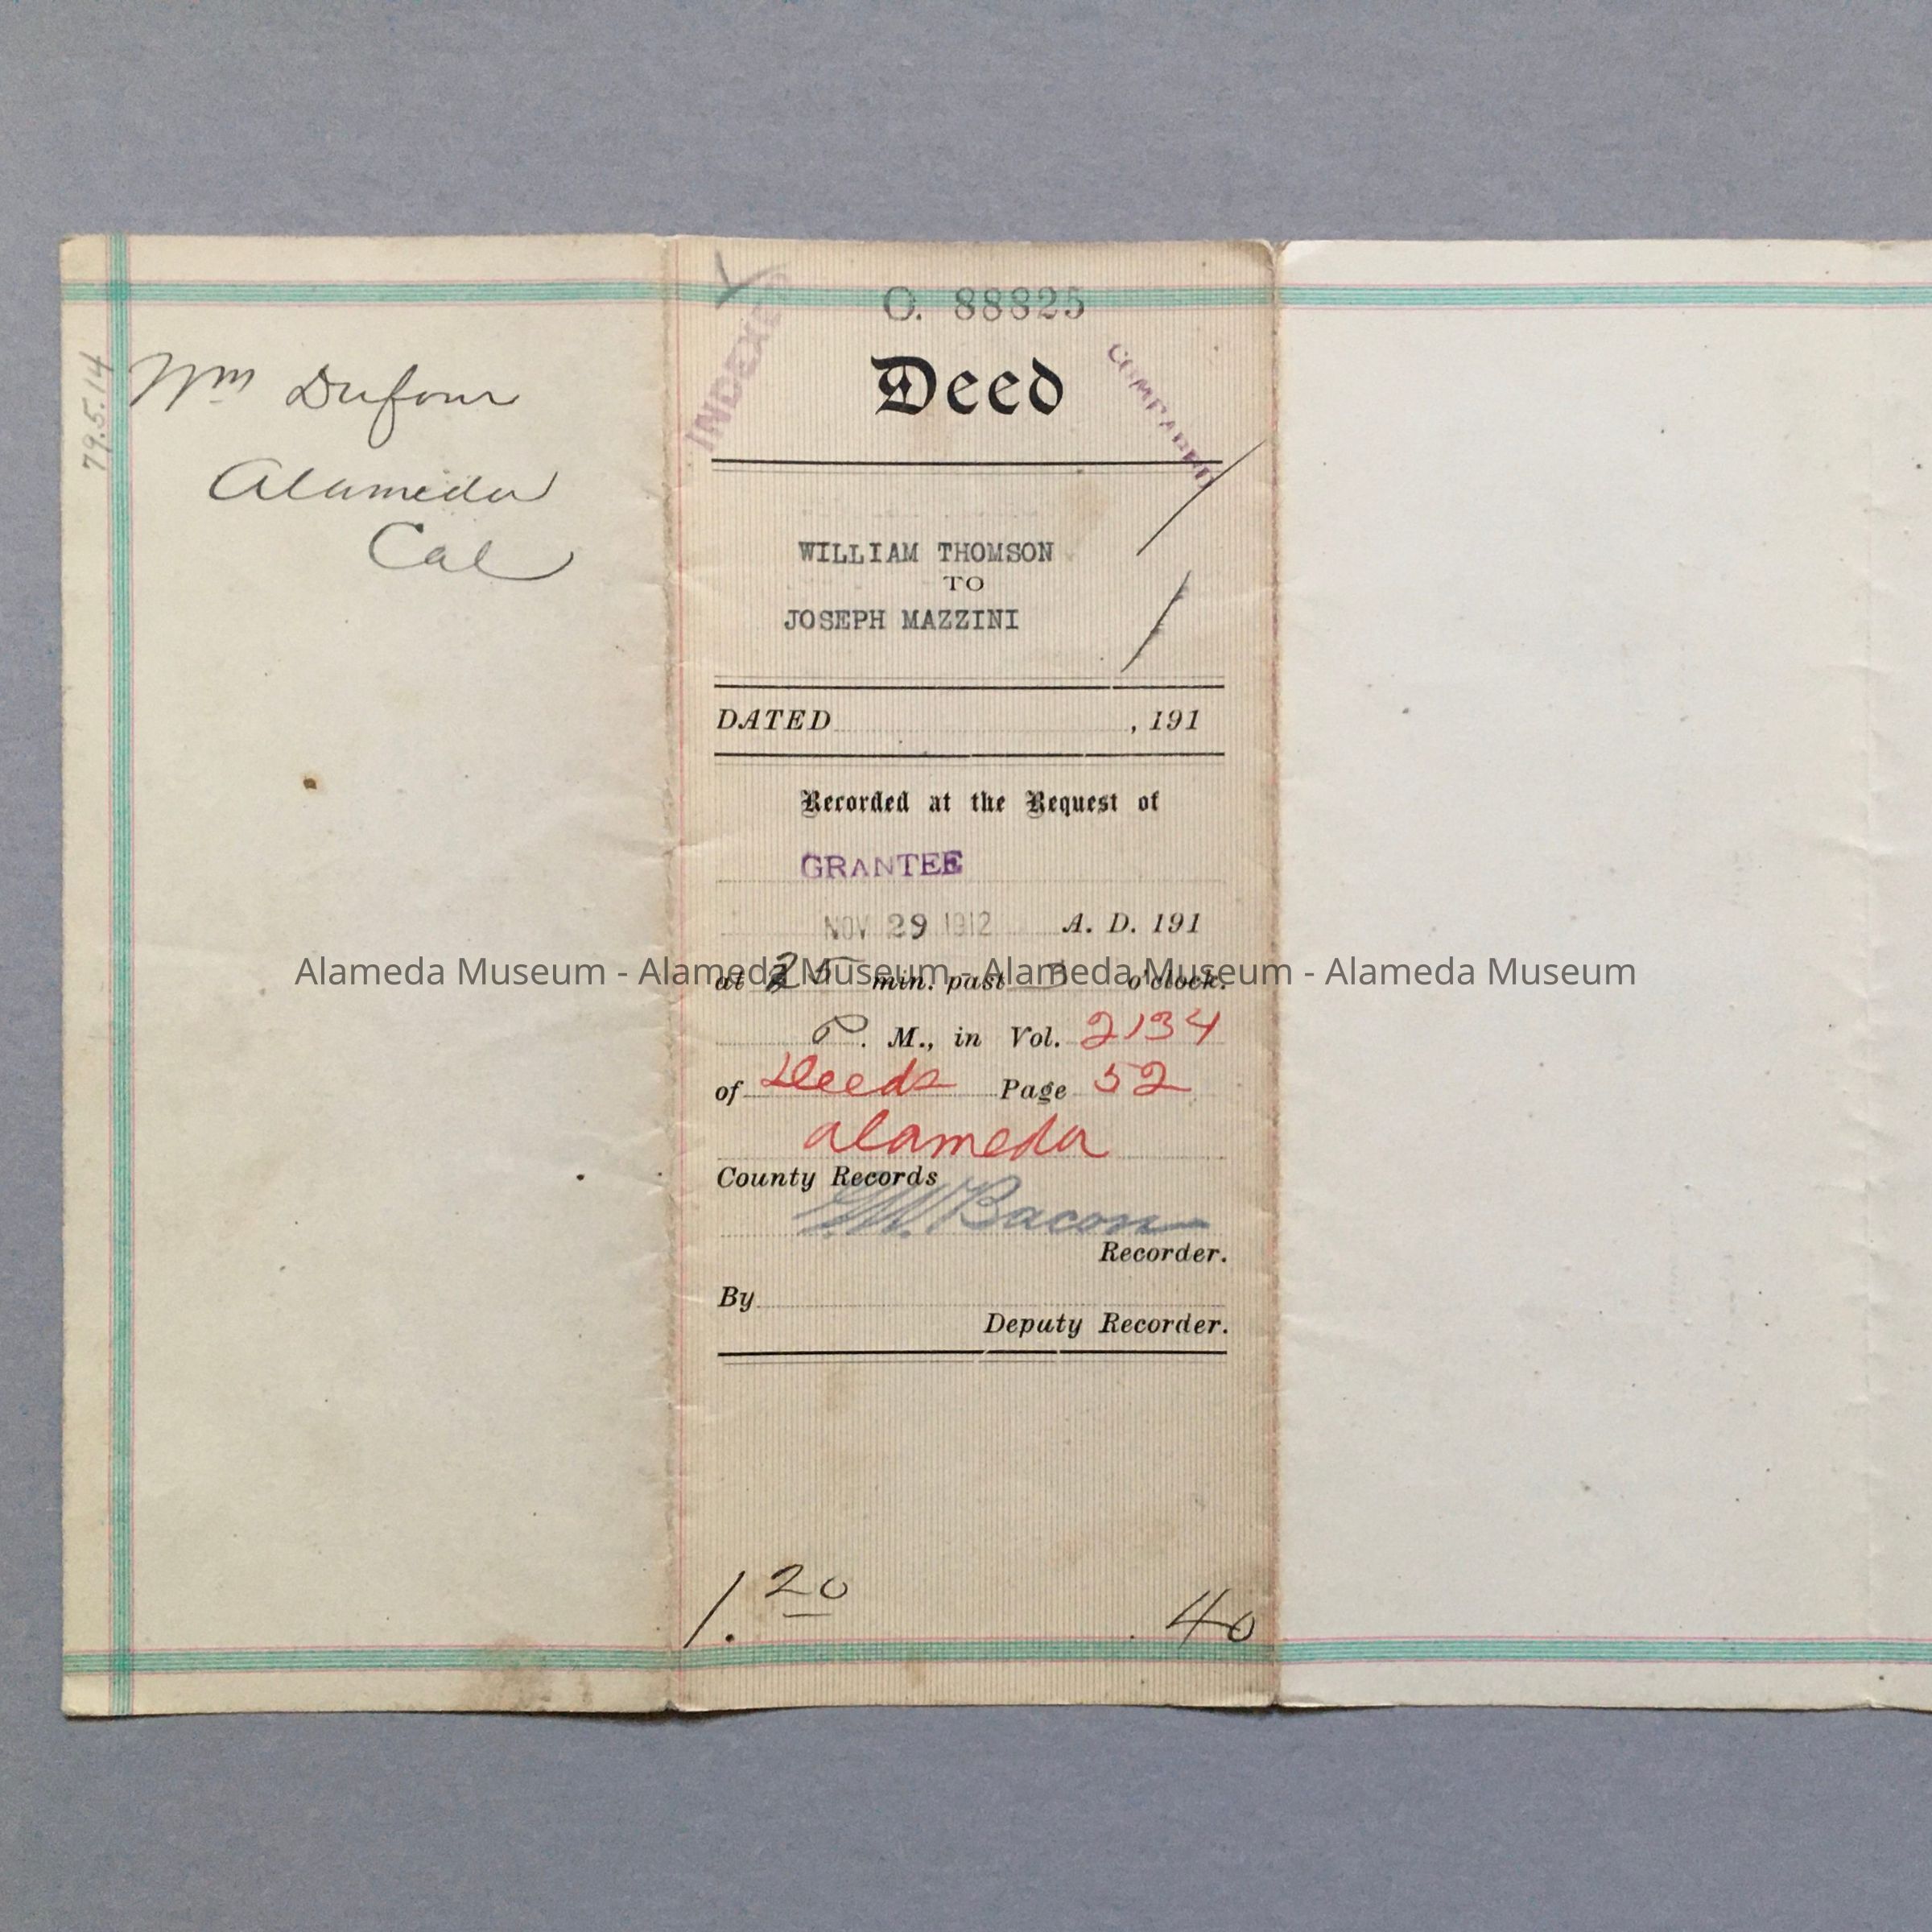 79.5.14
Wm Dufour
Alameda
Cal
O. 88825
INDEXED
Deed
COMPARED
WILLIAM THOMSON
TO
JOSEPH MAZZINI
DATED , 191
Recorded at the Request of
GRANTEE
NOV 29 1912 A. D. 191
Alameda Museum - Alameda Museum - Alameda Museum - Alameda Museum
at 25 min. past 3 o'clock.
P. M., in Vol. 2134
of Deeds Page 52
Alameda
County Records
G.W. Bacon
Recorder.
By
Deputy Recorder.
1.20 .40